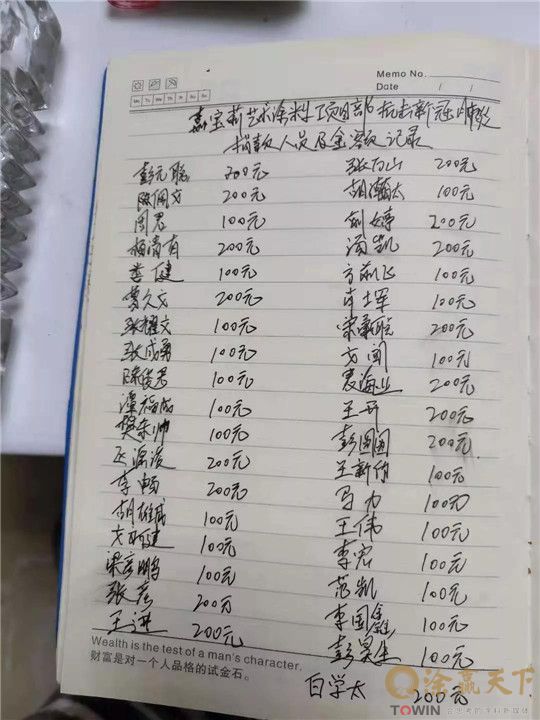 Memo No.
Date / /
Mo Tu We Th Fr Sa Su
嘉宝莉艺术涂料项目部抗击新冠肺炎
捐款人员及金额记录
彭元聪 200元 张万山 200元
欧佩文 200元 胡瀚太 100元
周君 100元 刘婷 200元
杨清有 200元 汤凯 200元
娄健 100元 方前飞 100元
曾久文 200元 肖土军 100元
张耀文 100元 200元
张成勇 100元 文闻 100元
陈俊君 100元 袁海业 200元
潭裕成 100元 王开 200元
樊东帅 100元 彭圆圆 200元
200元 王新伟 100元
李畅 200元 马力 100元
胡雄威 100元 王伟 100元
100元 李宏 100元
梁彦鹏 100元 范凯 100元
张磊 200元 李国鑫 100元
王进 200元 彭昊生 100元
Wealth is the test of a man's character.
财富是对一个人品格的试金石。
白学太 200元
涂赢天下
TOWIN 会思考的学科新媒体